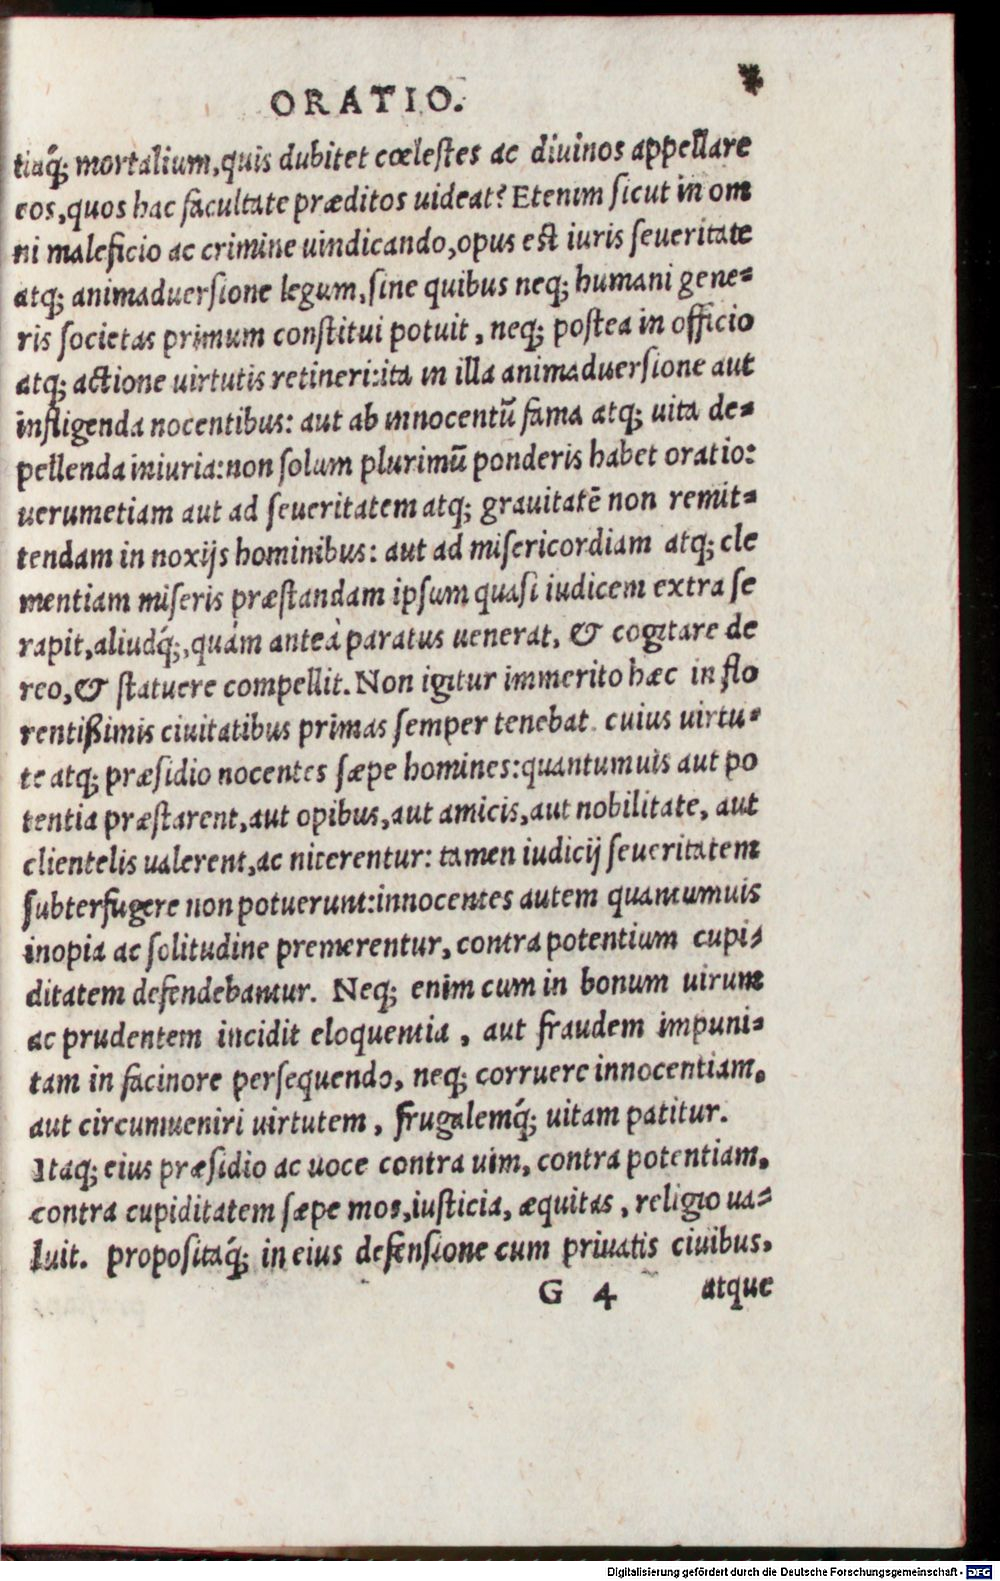 ORATIO.
tiaq́; mortalium,quis dubitet cœlestes ac diuinos appellare
eos,quos hac facultate præditos uideat? Etenim sicut in om
ni maleficio ac crimine uindicando,opus est iuris seueritate
atq; animaduersione legum,sine quibus neq; humani gene-
ris societas primum constitui potuit, neq; postea in officio
atq; actione uirtutis retineri:ita in illa animaduersione aut
infligenda nocentibus: aut ab innocentũ fama atq; uita de-
pellenda iniuria:non solum plurimũ ponderis habet oratio:
uerumetiam aut ad seueritatem atq; grauitatẽ non remit-
tendam in noxijs hominibus: aut ad misericordiam atq; cle
mentiam miseris præstandam ipsum quasi iudicem extra se
rapit,aliudq́;,quám anteà paratus uenerat, & cogitare de
reo,& statuere compellit. Non igitur immerito hæc in flo
rentißimis ciuitatibus primas semper tenebat. cuius uirtu-
te atq; præsidio nocentes sæpe homines:quantumuis aut po
tentia præstarent,aut opibus,aut amicis,aut nobilitate, aut
clientelis ualerent,ac niterentur: tamen iudicij seueritatem
subterfugere non potuerunt:innocentes autem quantumuis
inopia ac solitudine premerentur, contra potentium cupi-
ditatem defendebantur. Neq; enim cum in bonum uirum
ac prudentem incidit eloquentia, aut fraudem impuni-
tam in facinore persequendo, neq; corruere innocentiam,
aut circumueniri uirtutem, frugalemq́; uitam patitur.
Itaq; eius præsidio ac uoce contra uim, contra potentiam,
contra cupiditatem sæpe mos,iusticia, æquitas, religio ua-
luit. propositaq́; in eius defensione cum priuatis ciuibus,
G 4 atque
Digitalisierung gefördert durch die Deutsche Forschungsgemeinschaft - DFG